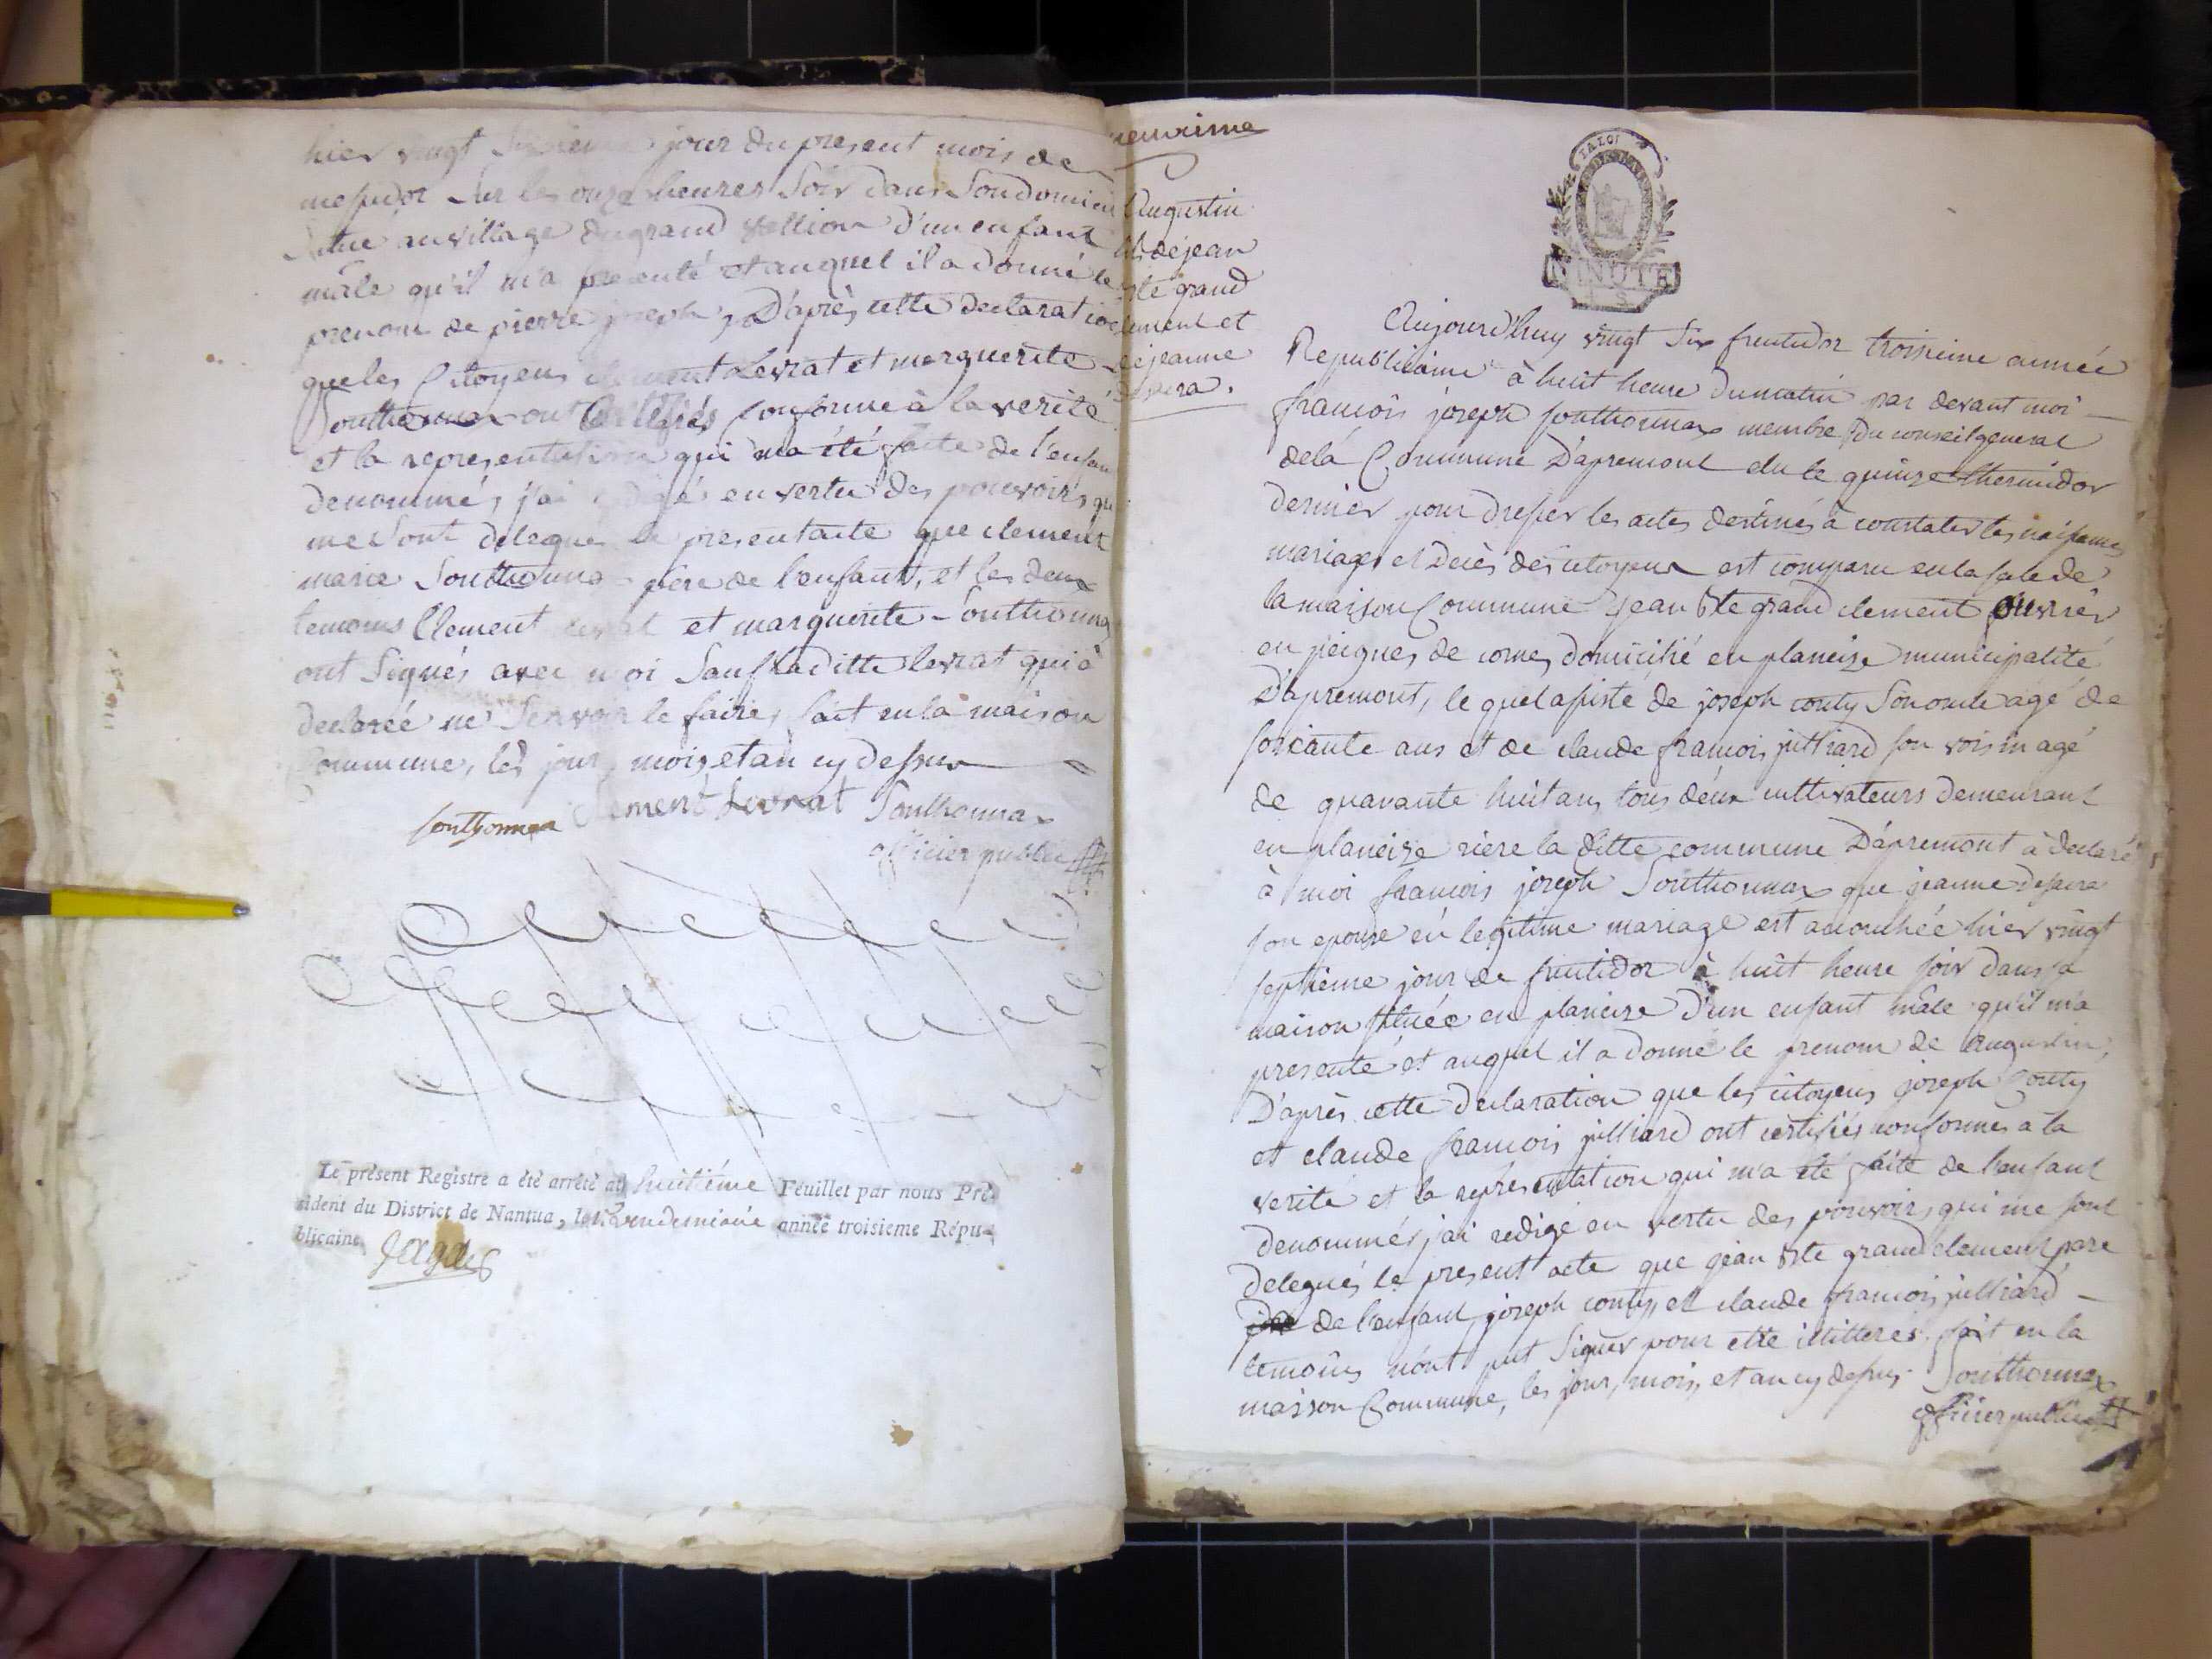 hier vingt jour du present mois de
messidor sur les onze heures soir dans son domicile
situé au village du grand vallion d'un enfant
mâle qu'il m'a presenté et auquel il a donné le
prenom de pierre joseph, D'après cette declaration
que les Citoyens clement Levrat et marguerite
Southonnax ont certifiés conforme à la verité
et la representation qui m'a été faite de l'enfant
denommé, j'ai redigés en vertu des pouvoirs qui
me sont delegue le present acte que clement
marie Southonna père de l'enfant, et les deux
temoins Clement levrat et marguerite - Southonna
ont signés avec moi sauf la ditte levrat qui à
declarée ne scavoir le faire, fait en la maison
Commune, les jour, mois et an cy dessus
southonnax Clement Levrat Southonnax
officier public
Le présent Registre a été arrêté au huitiéme Feuillet par nous Pré-
sident du District de Nantua, le vendemiaire année troisieme Répu-
blicaine.
neuvieme
Augustin
fils de jean
bte grand
clement et
de jeanne
LA LOI
MINUTE
Aujourd'huy vingt six fructidor troisieme année
Republicaine à huit heure du matin par devant moi
francois joseph southonnax membre du conseil general
de la Commune D'apremont elu le quinze thermidor
dernier pour dresser les actes destinés à constater les naissances
mariages et Decès des citoyens est comparu en la sale de
la maison Commune jean Bte grand clement ouvrier
en peignes de corne, domicilié en planeize municipalité
D'apremont, le quel assisté de joseph conty son oncle agé de
soixante ans et de claude francois julliard son voisin agé
de quarante huit ans, tous deux cultivateurs demeurant
en planeize riere la ditte commune D'apremont à declaré
à moi francois joseph Southonnax que jeanne
son epouse en legitime mariage est accouchée hier vingt
septieme jour de fructidor à huit heure soir dans sa
maison située en planeize D'un enfant mâle qu'il m'a
presenté et auquel il a donné le prenom de Augustin,
D'après cette declaration que les citoyens joseph Conty
et claude francois julliard ont certifiés conforme à la
verité et la representation qui m'a été faite de l'enfant
denommé, j'ai redigé en vertu des pouvoirs qui me sont
delegués le present acte que jean Bte grand clement pere
de l'enfant, joseph conty, et claude francois julliard -
temoins n'ont put signer pour etre illitteres. fait en la
maison Commune, les jour, mois, et an cy dessus. Southonnax
officier public